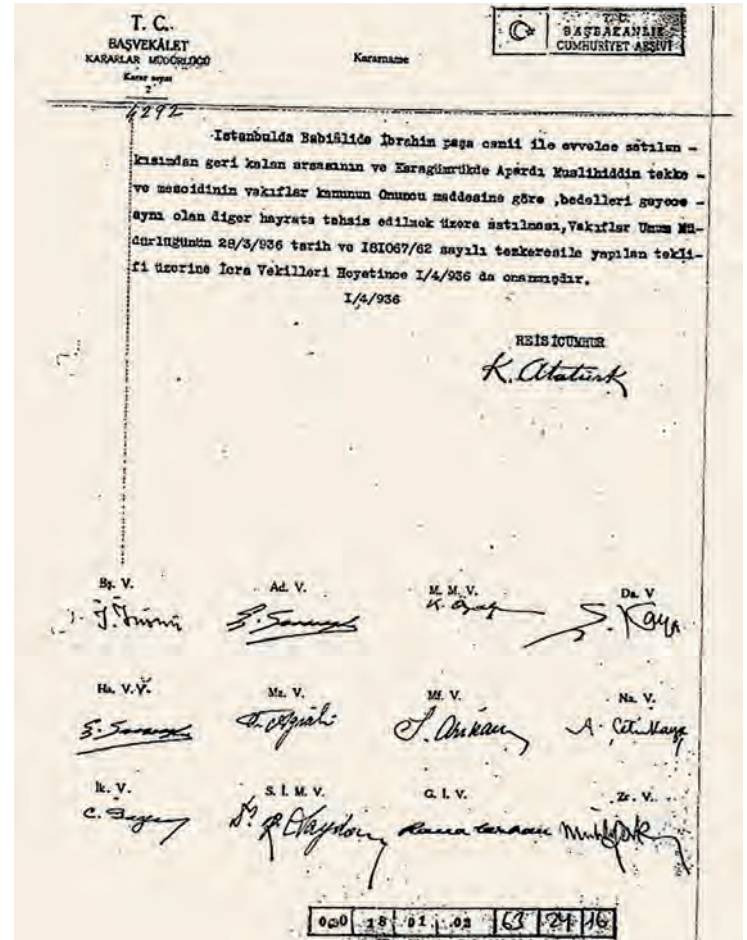 T. C.
BAŞVEKÂLET
KARARLAR MÜDÜRLÜĞÜ
Karar sayısı
2
4292
Kararname
T. C.
BAŞBAKANLIK
CUMHURİYET ARŞİVİ
Istanbulda Babiâlide İbrahim paşa camii ile evvelce satılan -
kısımdan geri kalan arsasının ve Karagümrükde Apardı Muslihiddin tekke -
ve mescidinin vakıflar kanunun Onuncu maddesine göre ,bedelleri gayece -
aynı olan diger hayrata tahsis edilmek üzere satılması,Vakıflar Umum Mü-
dürlügünün 28/3/936 tarih ve I8I067/62 sayılı tezkeresile yapılan tekli-
fi üzerine İcra Vekilleri Heyetince I/4/936 da onanmışdır.
I/4/936
REİSİCÜMHUR
K. Atatürk
Bş. V.
Ad. V.
M. M. V.
Da. V
İ. İnönü
Ş. Kaya
Ha. V.V.
Ma. V.
Mf. V.
Na. V.
S. Arıkan
A. Çetinkaya
İk. V.
S. İ. M. V.
G. İ. V.
Zr. V.
C. Bayar
Rana Tarhan
000 18 01 02 63 24 16